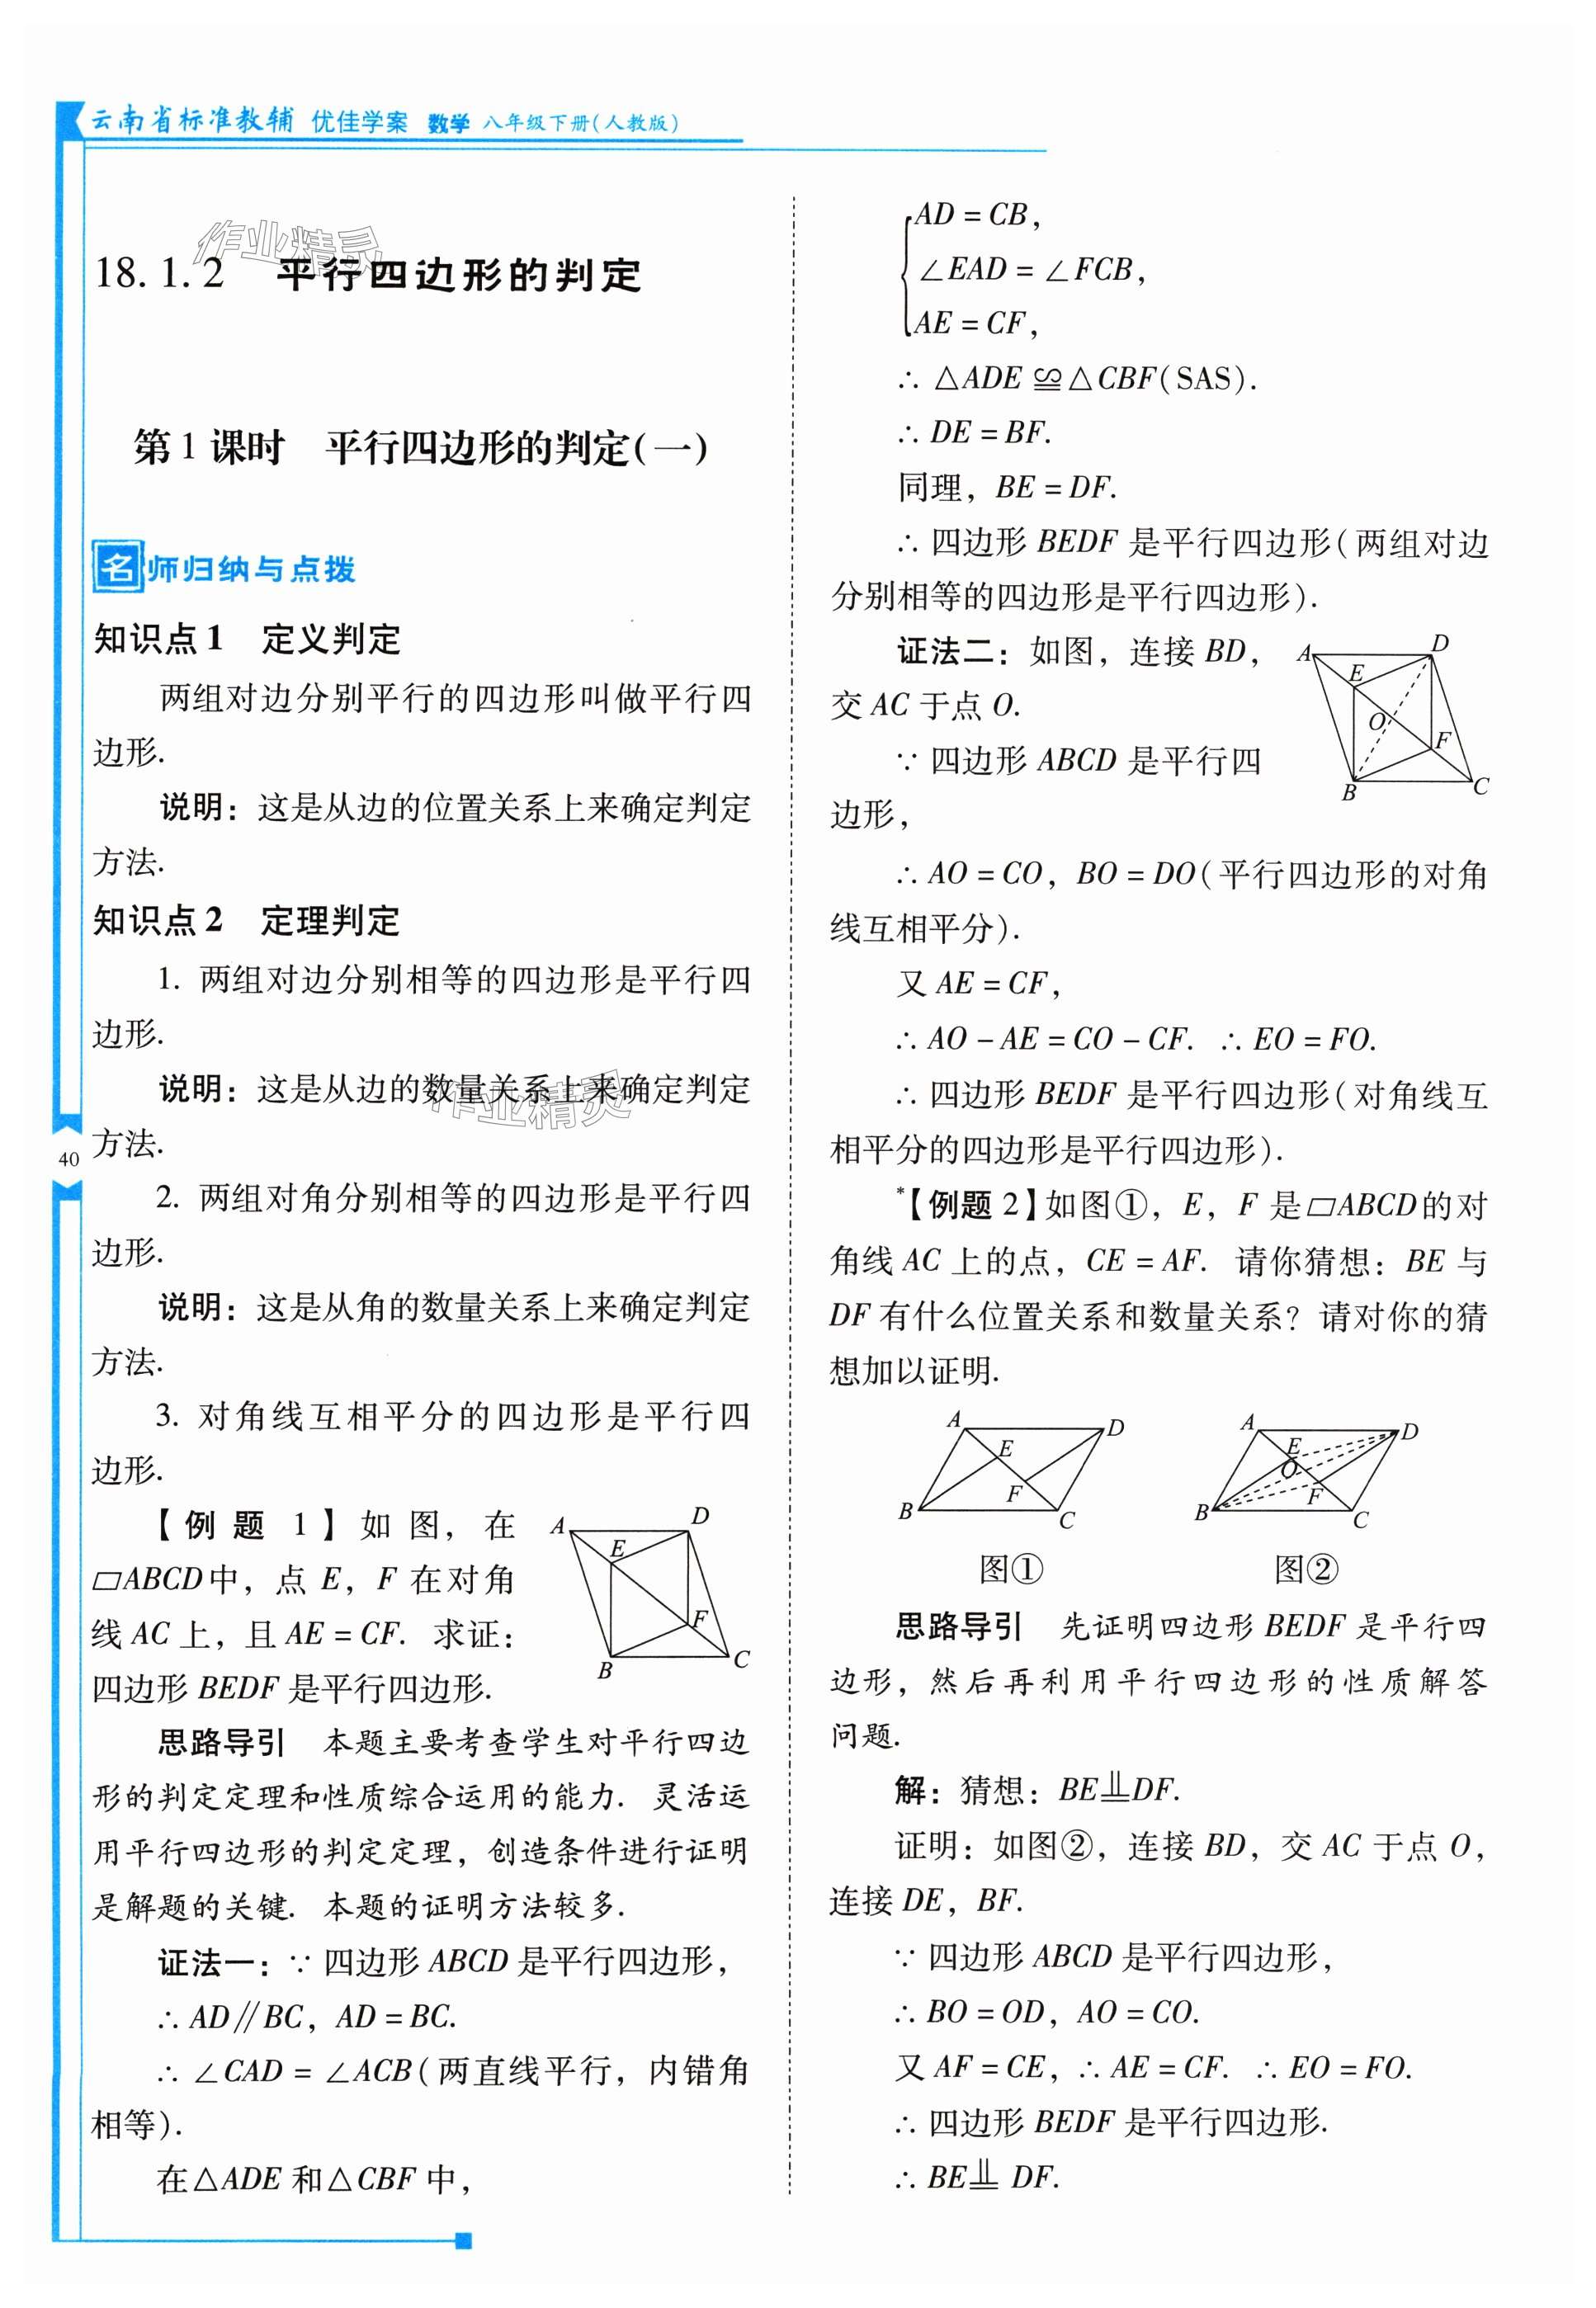 云南省标准教辅 优佳学案 数学 八年级下册(人教版)
18.1.2 平行四边形的判定
第1课时 平行四边形的判定(一)
名师归纳与点拨
知识点1 定义判定
两组对边分别平行的四边形叫做平行四
边形.
说明：这是从边的位置关系上来确定判定
方法.
知识点2 定理判定
1. 两组对边分别相等的四边形是平行四
边形.
说明：这是从边的数量关系上来确定判定
方法.
2. 两组对角分别相等的四边形是平行四
边形.
说明：这是从角的数量关系上来确定判定
方法.
3. 对角线互相平分的四边形是平行四
边形.
【例题1】如图，在
▱ABCD中，点E，F在对角
线AC上，且AE=CF. 求证：
四边形BEDF是平行四边形.
A
D
E
F
B
C
思路导引 本题主要考查学生对平行四边
形的判定定理和性质综合运用的能力. 灵活运
用平行四边形的判定定理，创造条件进行证明
是解题的关键. 本题的证明方法较多.
证法一：∵四边形ABCD是平行四边形，
∴AD∥BC，AD=BC.
∴∠CAD=∠ACB(两直线平行，内错角
相等).
在△ADE和△CBF中，
AD=CB，
∠EAD=∠FCB，
AE=CF，
∴△ADE≌△CBF(SAS).
∴DE=BF.
同理，BE=DF.
∴四边形BEDF是平行四边形(两组对边
分别相等的四边形是平行四边形).
证法二：如图，连接BD，
交AC于点O.
∵四边形ABCD是平行四
边形，
A
D
E
O
F
B
C
∴AO=CO，BO=DO(平行四边形的对角
线互相平分).
又AE=CF，
∴AO-AE=CO-CF. ∴EO=FO.
∴四边形BEDF是平行四边形(对角线互
相平分的四边形是平行四边形).
*【例题2】如图①，E，F是▱ABCD的对
角线AC上的点，CE=AF. 请你猜想：BE与
DF有什么位置关系和数量关系？请对你的猜
想加以证明.
A
D
E
F
B
C
图①
A
D
E
O
F
B
C
图②
思路导引 先证明四边形BEDF是平行四
边形，然后再利用平行四边形的性质解答
问题.
解：猜想：BE⫫DF.
证明：如图②，连接BD，交AC于点O，
连接DE，BF.
∵四边形ABCD是平行四边形，
∴BO=OD，AO=CO.
又AF=CE，∴AE=CF. ∴EO=FO.
∴四边形BEDF是平行四边形.
∴BE⫫DF.
40
作业精灵
作业精灵